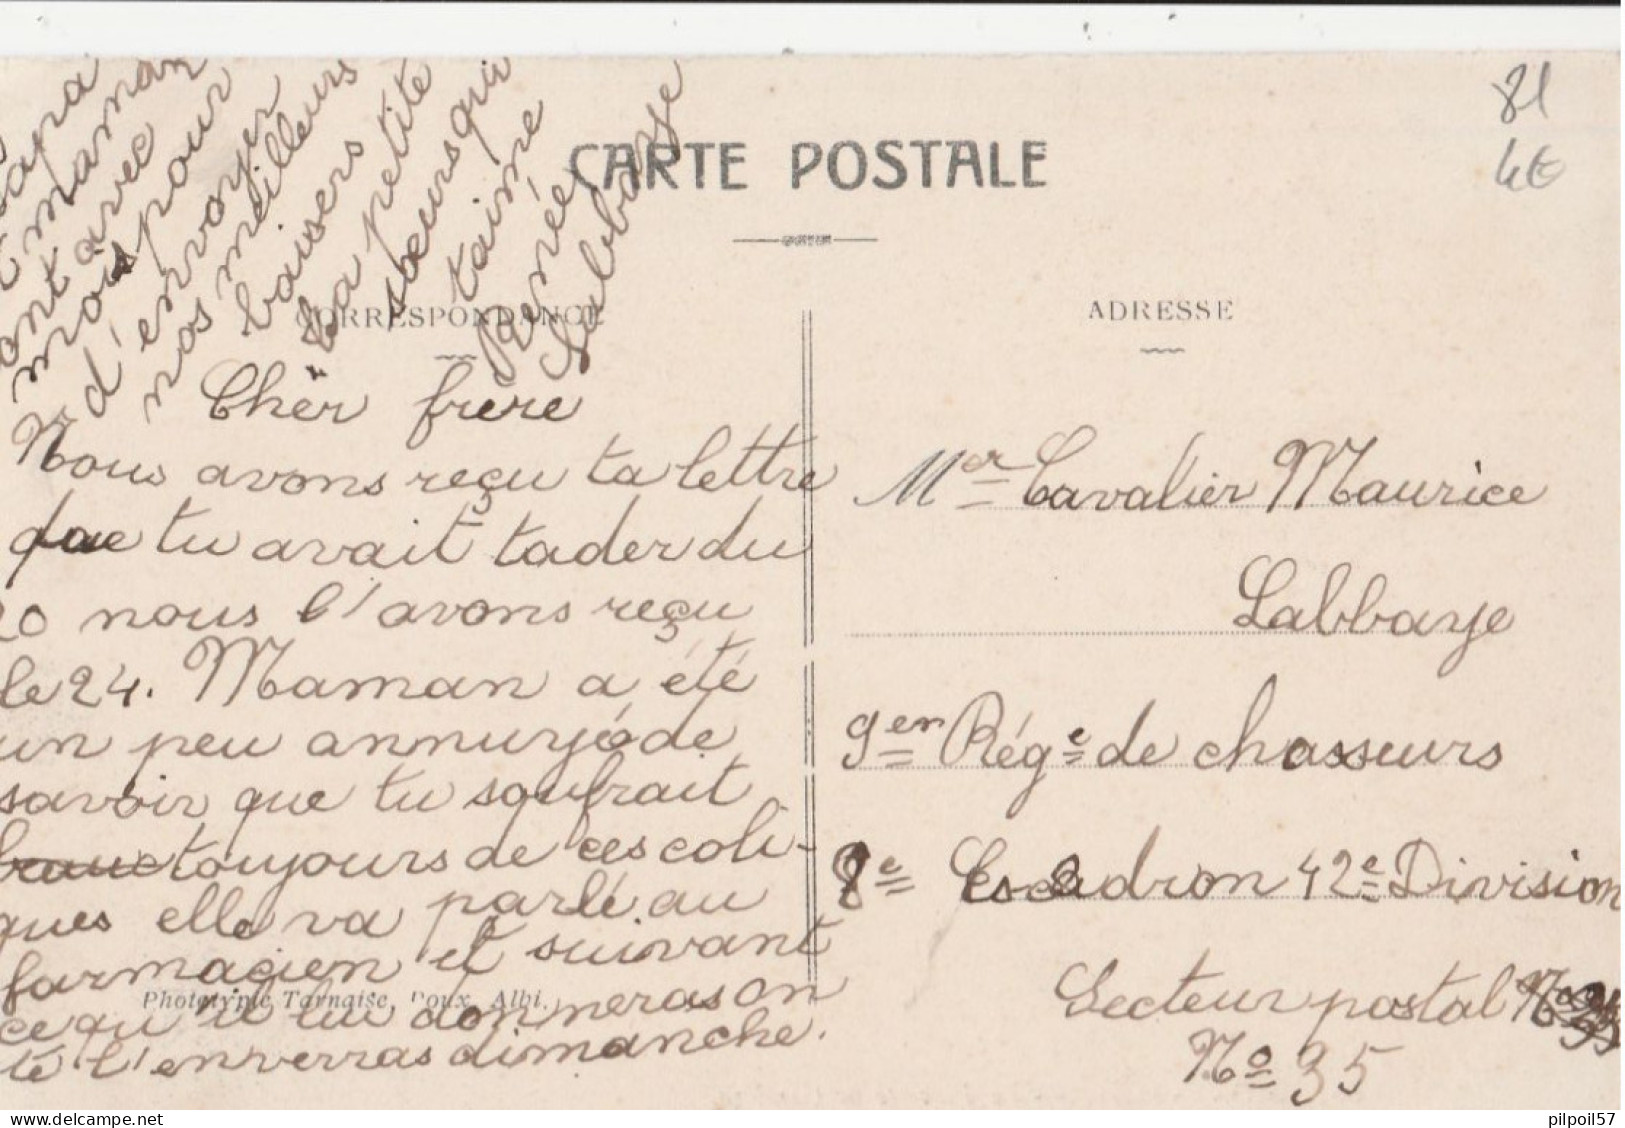 81
4€
CARTE POSTALE
CORRESPONDANCE
ADRESSE
Cher frère
Nous avons reçu ta lettre
que tu avait tader du
20 nous l'avons reçu
le 24. Maman a été
un peu annuyé de
savoir que tu soufrait
toujours de ces coli-
ques elle va parlé au
farmacien et suivant
ce qu'il lui donneras on
te l'enverras dimanche.
papa
et maman
ont avec
mois pour
d'envoyer
nos meilleurs
baisers
ta petite
soeurs qui
taime
Renée
Labbaye
Phototypie Tarnaise, Poux, Albi.
Mer Cavalier Maurice
Labbaye
9em Rége de chasseurs
8e Escadron 42e Division
Secteur postal
No 35
pilpoil57